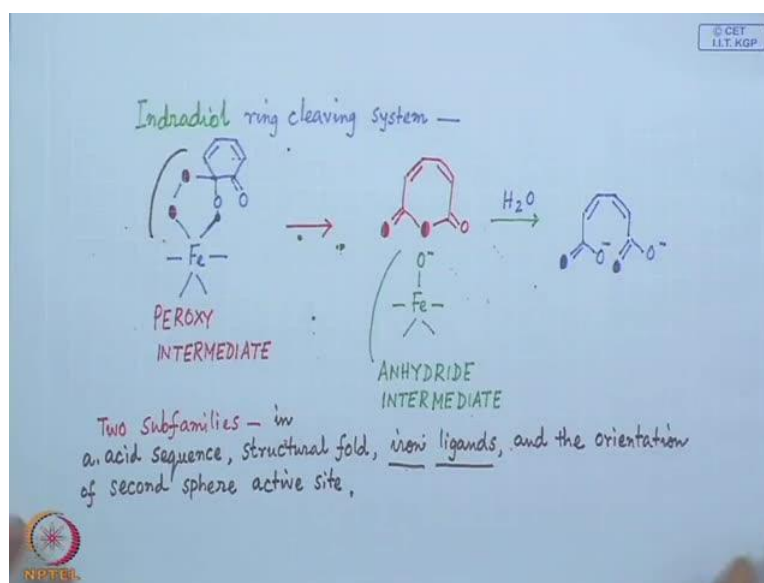 © CET
I.I.T. KGP
Indradiol ring cleaving system —
O O
Fe
PEROXY
INTERMEDIATE
O
O⁻
Fe
ANHYDRIDE
INTERMEDIATE
H₂O
O⁻ O⁻
Two subfamilies – in
a. acid sequence, structural fold, iron ligands, and the orientation
of second sphere active site.
NPTEL